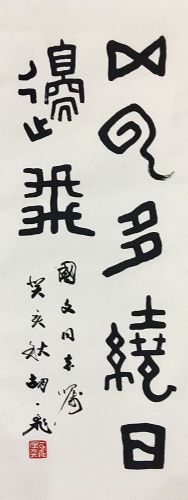 五雲多繞日
邊飛
國文同志屬
癸亥秋胡一飛